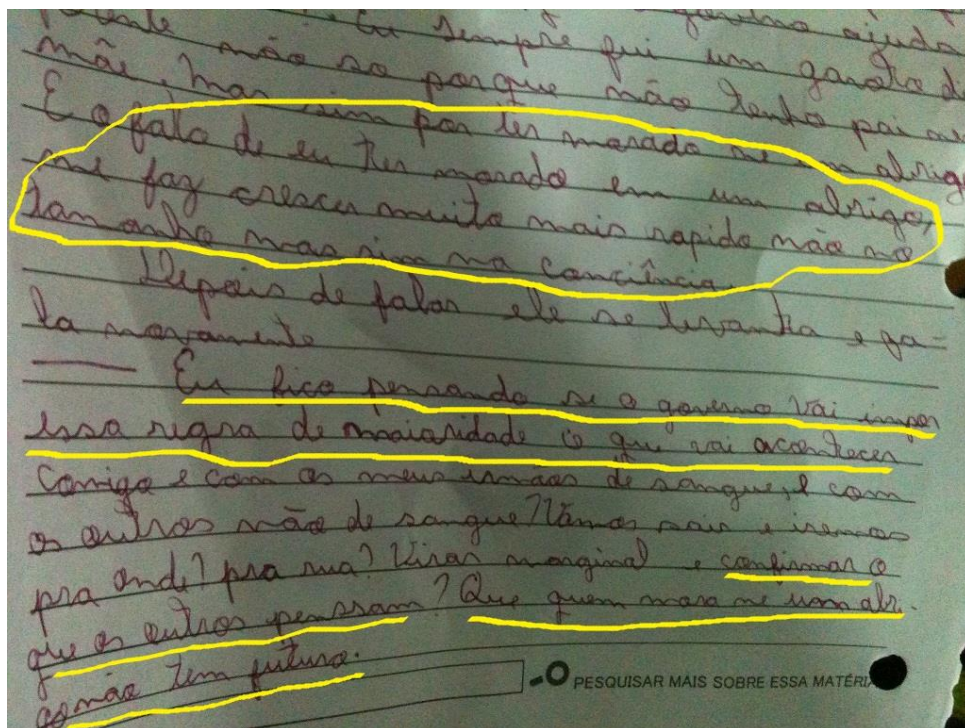 não Eu sempre fui um garoto di
não so porque não tenho pai
mãe. Mas sim por ter morado ne um abrigo
E o fato de eu ter morado em um abrigo,
me faz crescer muito mais rapido não no
tamanho mas sim na conciência.
Depois de falar ele se levanta e fa-
la novamente
Eu fico pensando se o governo vai impor
essa regra de maioridade o que vai acontecer
comigo e com os meus irmãos de sangue, e com
os outros não de sangue? Vamos sair e iremos
pra onde? pra rua? Virar marginal e confirmar o
que os outros penssam? Que quem mora ne um abri-
go não tem futuro.
PESQUISAR MAIS SOBRE ESSA MATÉRI